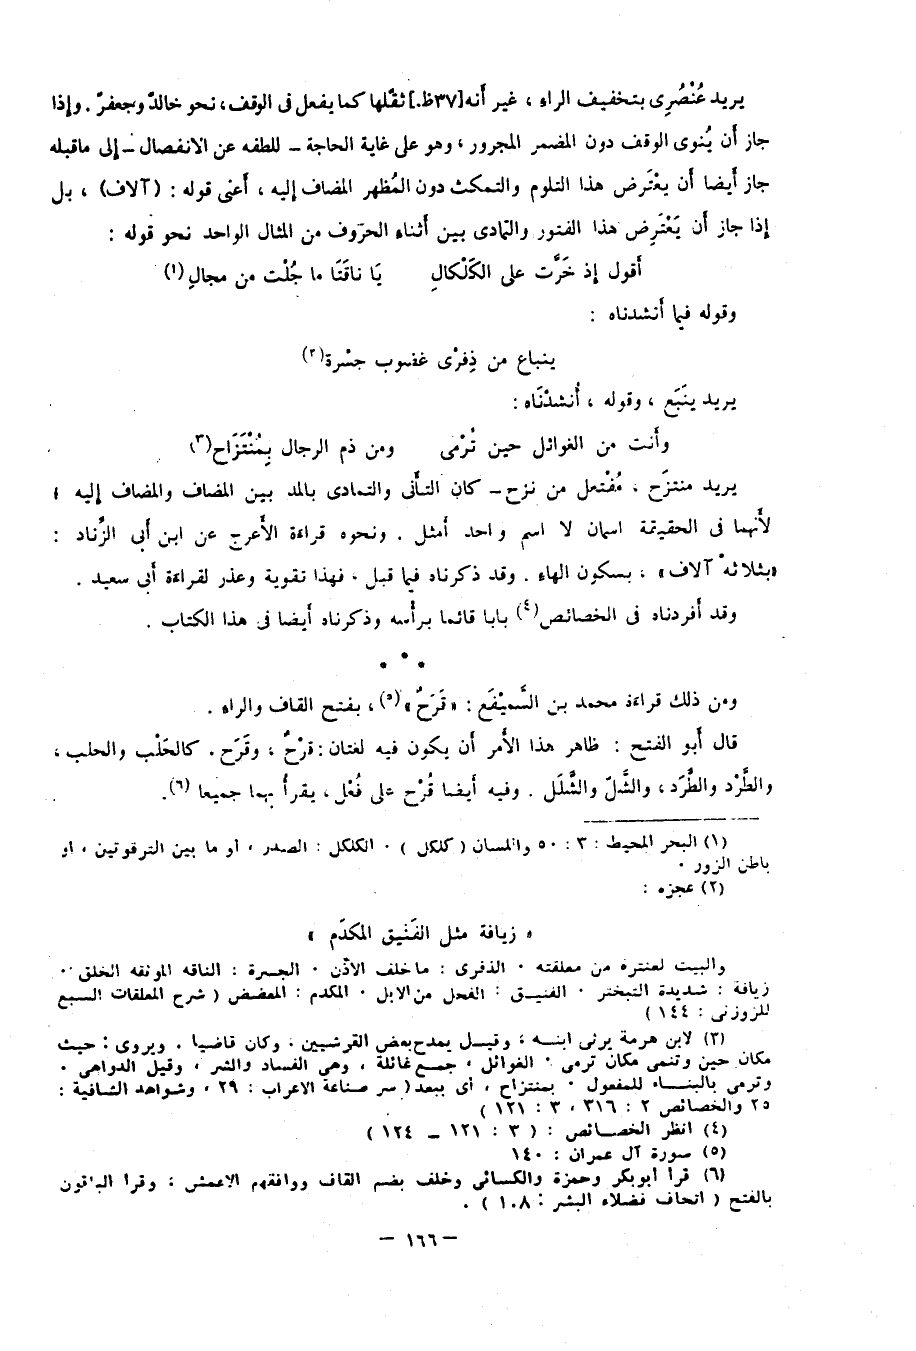 يريد عُنْصُرِى بتخفيف الراء ، غير أنه [٣٧ظ] ثقّلها كما يفعل فى الوقف، نحو خالدّ وجعفرّ . وإذا
جاز أن يُنوى الوقف دون المضمر المجرور ، وهو على غاية الحاجة – للطفه عن الانفصال – إلى ماقبله
جاز أيضا أن يعْتَرض هذا التلوم والتمكث دون المُظهر المضاف إليه ، أعنى قوله : (آلاف) ، بل
إذا جاز أن يَعْتَرِض هذا الفتور والتمادى بين أثناء الحرّوف من المثال الواحد نحو قوله :
أقول إذ خَرَّت على الكَلْكالِ يَا ناقَتَا ما جُلْت من مجالِ (١)
وقوله فيما أنشدناه :
ينباع من ذِفرْى غضوب جسْرة (٢)
يريد ينَبَع ، وقوله ، أُنشدْنَاه :
وأنت من الغوائل حين تُرْمى ومن ذم الرجال بِمُنْتَزَاح (٣)
يريد منتزَح ، مُفْتعل من نزح – كان التأنى والتمادى بالمد بين المضاف والمضاف إليه ؛
لأَنهما فى الحقيقة اسمان لا اسم واحد أمثل . ونحوه قراءة الأعرج عن ابن أبى الزِّناد :
«بثلاثهْ آلاف» ، بسكون الهاء . وقد ذكرناه فيما قبل ، فهذا تقوية وعذر لقراءة أبى سعيد .
وقد أفردناه فى الخصائص (٤) بابا قائما برأسه وذكرناه أيضا فى هذا الكتاب .
* * *
ومن ذلك قراءة محمد بن السَّمَيْفَع : «قَرَحٌ» (٥) ، بفتح القاف والراء .
قال أبو الفتح : ظاهر هذا الأمر أن يكون فيه لغتان : قَرْحٌ ، وقَرَح . كالحَلْب والحلب ،
والطَّرْد والطَّرَد ، والشَّلّ والشَّلَل . وفيه أيضا قُرْح على فُعْل ، يقرأُ بهما جميعا (٦) .
(١) البحر المحيط : ٣ : ٥٠ واللسان ( كلكل ) . الكلكل : الصدر ، او ما بين الترقوتين ، او
باطن الزور .
(٢) عجزه :
« زيافة مثل الفَنيق المكدَم »
والبيت لعنترة من معلقته . الذفرى : ماخلف الأذن . الجسرة : الناقة الموثقة الخلق .
زيافة : شديدة التبختر . الفنيق : الفحل من الابل . المكدم : المعضض ( شرح المعلقات السبع
للزوزنى : ١٤٤ )
(٣) لابن هرمة يرثى ابنه ، وقيل يمدح بعض القرشيين ، وكان قاضيا . ويروى : حيث
مكان حين وتنمى مكان ترمى . الغوائل ، جمع غائلة ، وهى الفساد والشر ، وقيل الدواهى .
وترمى بالبناء للمفعول . بمنتزاح ، أى ببعد ( سر صناعة الاعراب : ٢٩ ، وشواهد الشافية :
٢٥ والخصائص ٢ : ٣١٦ ، ٣ : ١٢١ )
(٤) انظر الخصائص : ( ٣ : ١٢١ – ١٢٤ )
(٥) سورة آل عمران : ١٤٠
(٦) قرأ أبوبكر وحمزة والكسائى وخلف بضم القاف ووافقهم الاعمش ، وقرأ الباقون
بالفتح ( اتحاف فضلاء البشر : ١٠٨ ) .
– ١٦٦ –